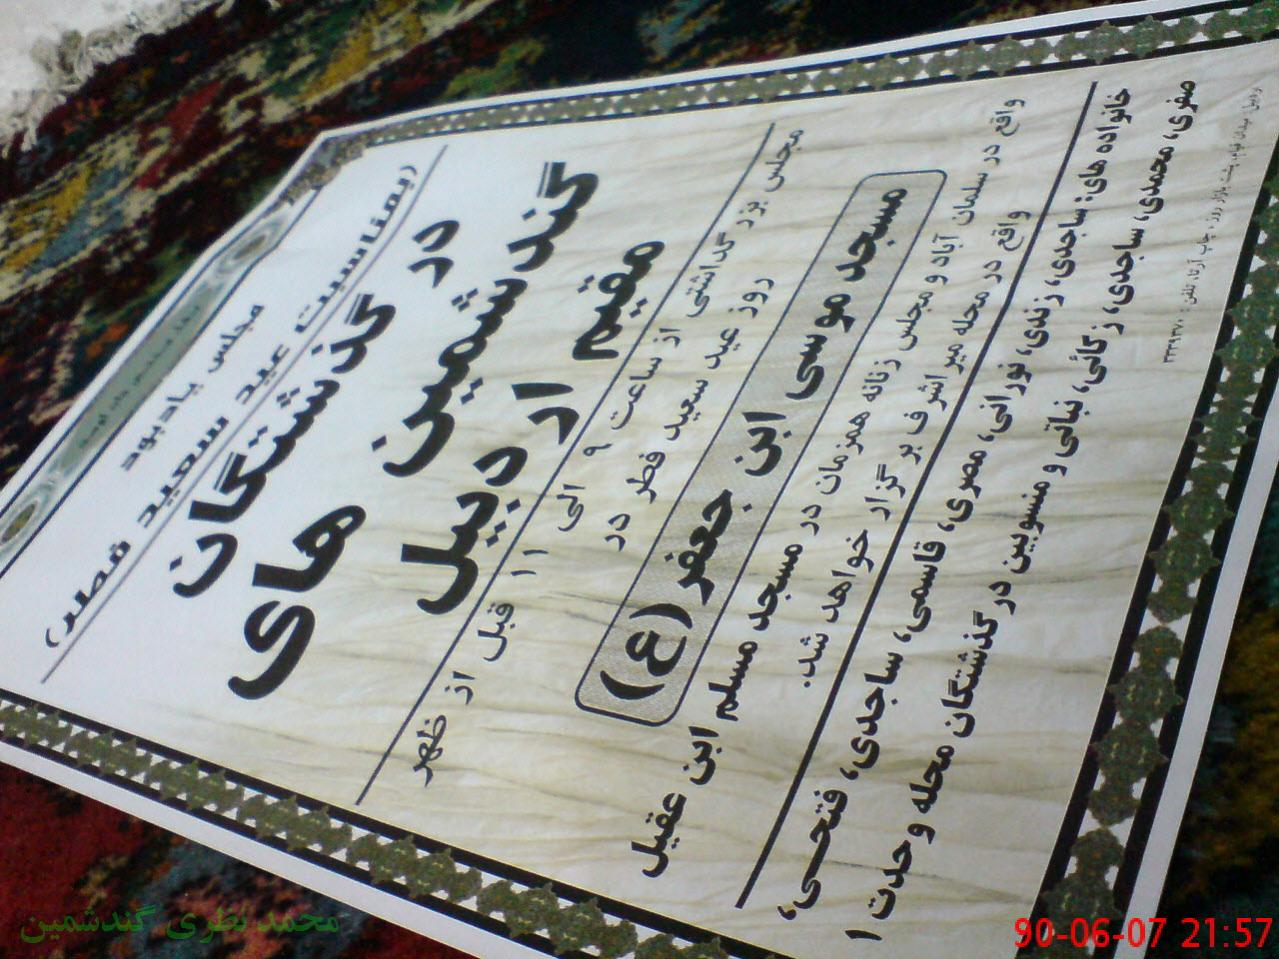 مجلس یادبود
(بمناسبت عید سعید فطر)
در گذشتگان
گندشمین های
مقیم اردبیل
مجلس بزرگداشتی از ساعت ۹ الی ۱۱ قبل از ظهر
روز عید سعید فطر در
مسجد موسی ابن جعفر (ع)
واقع در سلمان آباد و مجلس زنانه همزمان در مسجد مسلم ابن عقیل
واقع در محله میر اشرف برگزار خواهد شد.
خانواده های: ساجدی، زندی، نورانی، مصری، قاسمی، ساجدی، فتحی،
صفری، محمدی، ساجدی، زکائی، نباتی و منسوبین در گذشتگان محله وحدت ۱
میدان قیام، پشت بازار روز، چاپ آرتا، تلفن:
محمد نظری گندشمین
90-06-07 21:57